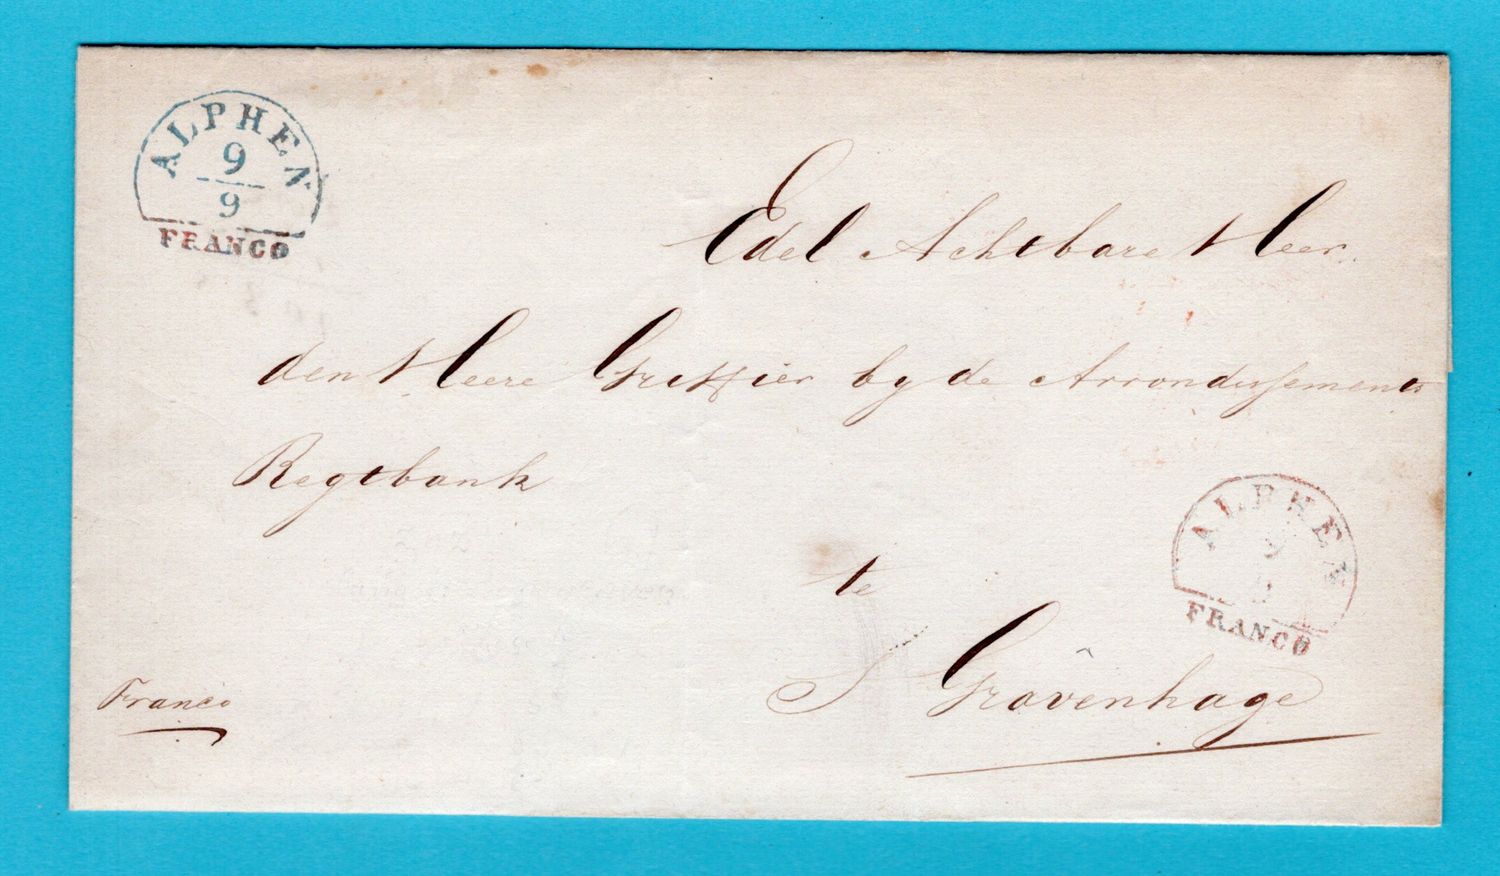 ALPHEN
9
9
FRANCO
Edel Achtbare Heer
den Heere Griffier by de Arrondissements
Regtbank
te
S Gravenhage
ALPHEN
9
FRANCO
Franco